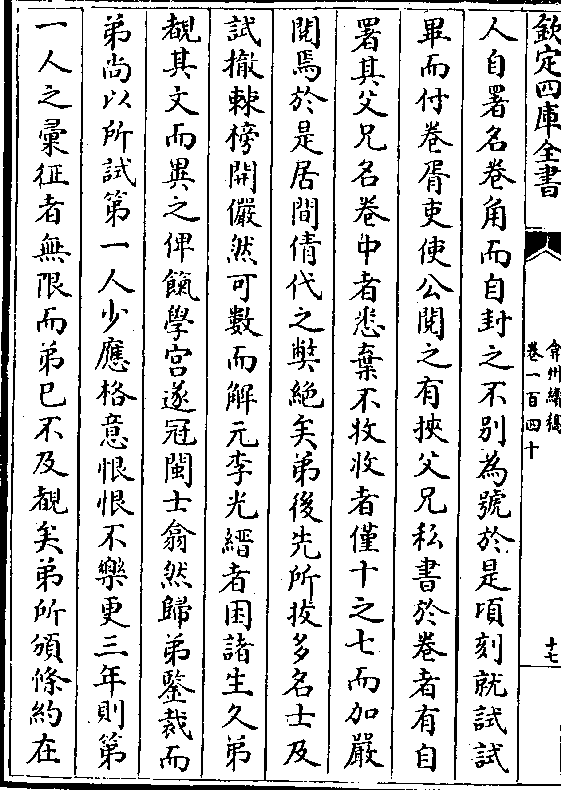 欽定四庫全書
弇州續稿
卷一百四十
十七
人自署名卷角而自封之不別為號於是頃刻就試試
畢而付卷胥吏使公閱之有挾父兄私書於卷者有自
署其父兄名卷中者悉棄不收收者僅十之七而加嚴
閱焉於是居間倩代之獘絕矣弟後先所拔多名士及
試撤棘榜開儼然可數而解元李光縉者困諸生久弟
覩其文而異之俾餼學宮遂冠閩士翕然歸弟鑒裁而
弟尚以所試第一人少應格意恨恨不樂更三年則第
一人之彚征者無限而弟已不及覩矣弟所頒條約在